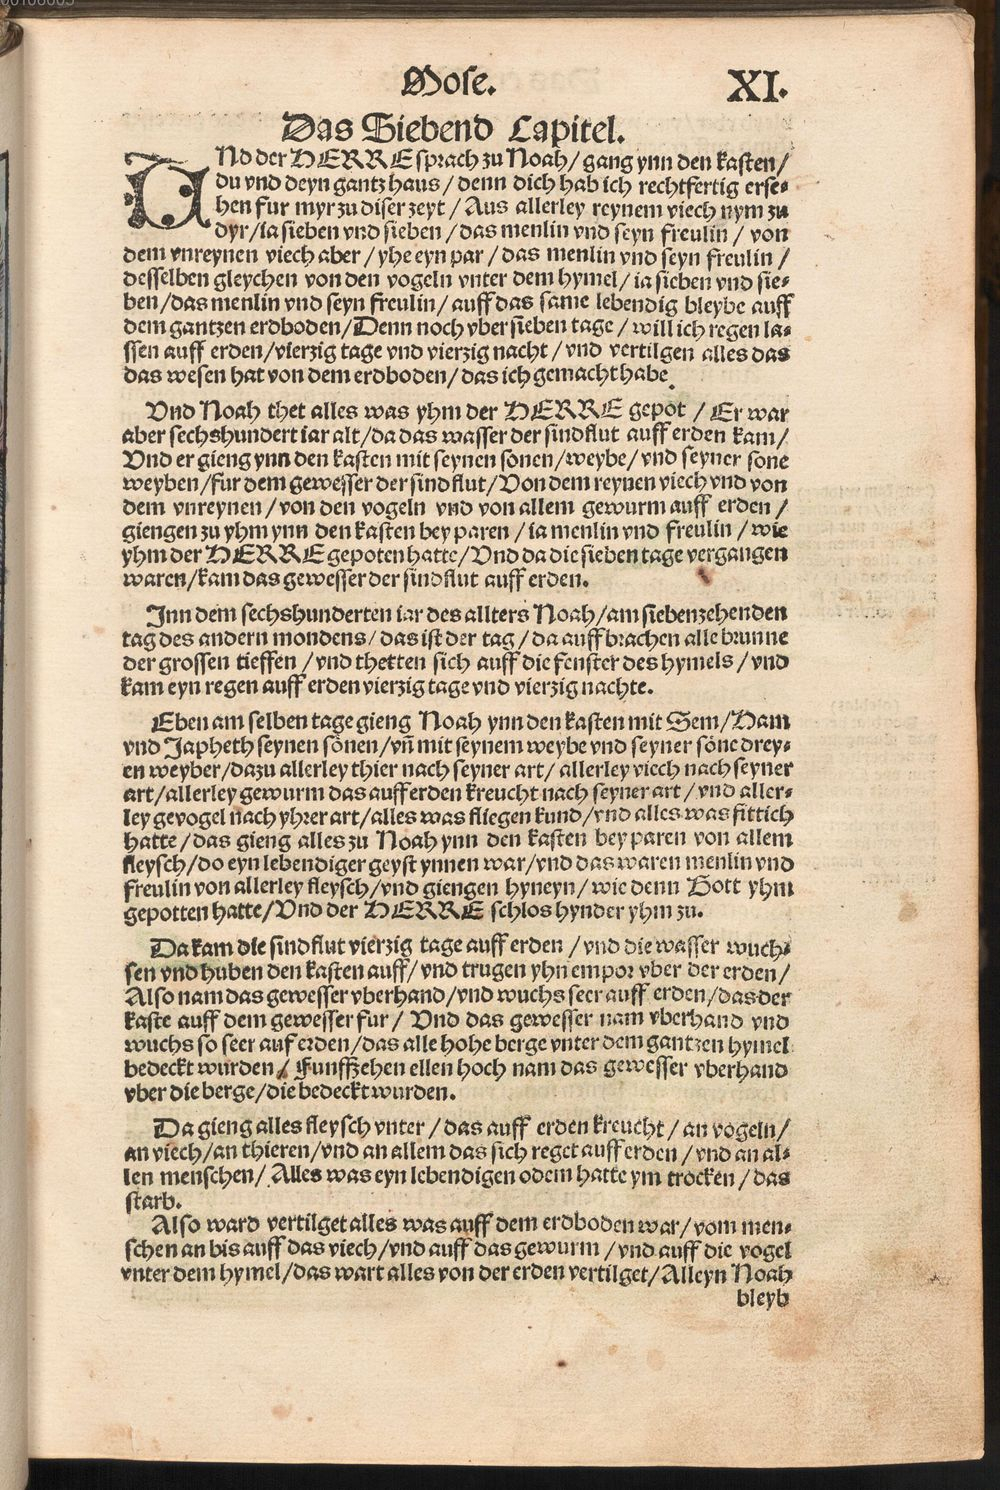 Mose. XI.
Das Siebend Capitel.
VNd der HERRE sprach zu Noah/ gang ynn den kasten/
du vnd deyn gantz haus/ denn dich hab ich rechtfertig erse-
hen fur myr zu diser zeyt/ Aus allerley reynem viech nym zu
dyr/ ia sieben vnd sieben/ das menlin vnd seyn freulin/ von
dem vnreynen viech aber/ yhe eyn par/ das menlin vnd seyn freulin/
desselben gleychen von den vogeln vnter dem hymel/ ia sieben vnd sie-
ben/ das menlin vnd seyn freulin/ auff das same lebendig bleybe auff
dem gantzen erdboden/ Denn noch vber sieben tage/ will ich regen la-
ssen auff erden/ vierzig tage vnd vierzig nacht/ vnd vertilgen alles das
das wesen hat von dem erdboden/ das ich gemacht habe.
Vnd Noah thet alles was yhm der HERRE gepot/ Er war
aber sechshundert iar alt/ da das wasser der sindflut auff erden kam/
Vnd er gieng ynn den kasten mit seynen sonen/ weybe/ vnd seyner sone
weyben/ fur dem gewesser der sindflut/ Von dem reynen viech vnd von
dem vnreynen/ von den vogeln vnd von allem gewurm auff erden/
giengen zu yhm ynn den kasten bey paren/ ia menlin vnd freulin/ wie
yhm der HERRE gepoten hatte/ Vnd da die sieben tage vergangen
waren/ kam das gewesser der sindflut auff erden.
Inn dem sechshunderten iar des allters Noah/ am siebenzehenden
tag des andern mondens/ das ist der tag/ da auffbrachen alle brunne
der grossen tieffen/ vnd thetten sich auff die fenster des hymels/ vnd
kam eyn regen auff erden vierzig tage vnd vierzig nachte.
Eben am selben tage gieng Noah ynn den kasten mit Sem/ Ham
vnd Japheth seynen sönen/ vñ mit seynem weybe vnd seyner söne drey-
en weyber/ dazu allerley thier nach seyner art/ allerley viech nach seyner
art/ allerley gewurm das auff erden kreucht nach seyner art/ vnd aller-
ley gevogel nach yhrer art/ alles was fliegen kund/ vnd alles was fittich
hatte/ das gieng alles zu Noah ynn den kasten bey paren von allem
fleysch/ do eyn lebendiger geyst ynnen war/ vnd das waren menlin vnd
freulin von allerley fleysch/ vnd giengen hyneyn/ wie denn Gott yhm
gepotten hatte/ Vnd der HERRE schlos hynder yhm zu.
Da kam die sindflut vierzig tage auff erden/ vnd die wasser wuch-
sen vnd huben den kasten auff/ vnd trugen yhn empor vber der erden/
Also nam das gewesser vberhand/ vnd wuchs seer auff erden/ das der
kaste auff dem gewesser fur/ Vnd das gewesser nam vberhand vnd
wuchs so seer auf erden/ das alle hohe berge vnter dem gantzen hymel
bedeckt wurden/ Funffzehen ellen hoch nam das gewesser vberhand
vber die berge/ die bedeckt wurden.
Da gieng alles fleysch vnter/ das auff erden kreucht/ an vögeln/
an viech/ an thieren/ vnd an allem das sich reget auff erden/ vnd an al-
len menschen/ Alles was eyn lebendigen odem hatte ym trocken/ das
starb.
Also ward vertilget alles was auff dem erdboden war/ vom men-
schen an bis auff das viech/ vnd auff das gewurm/ vnd auff die vogel
vnter dem hymel/ das wart alles von der erden vertilget/ Alleyn Noah
bleyb